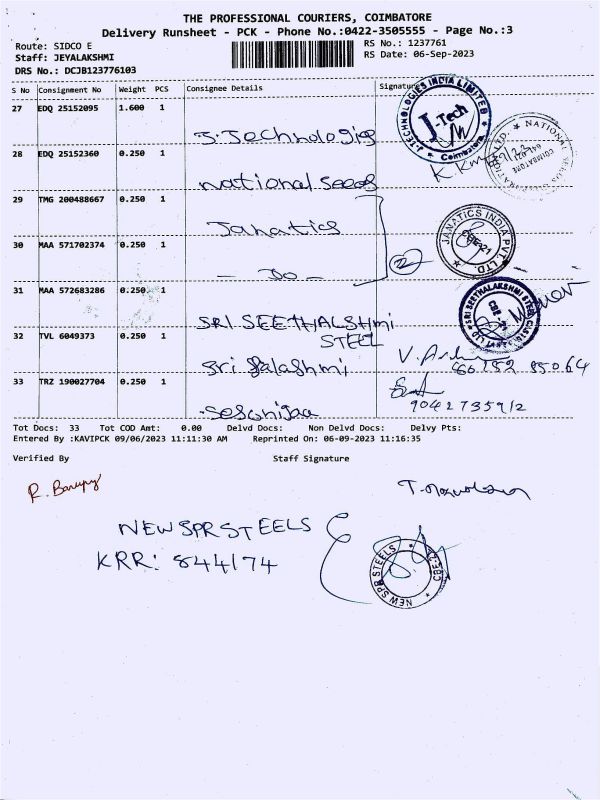 THE PROFESSIONAL COURIERS, COIMBATORE
Delivery Runsheet - PCK - Phone No.:0422-3505555 - Page No.:3
Route: SIDCO E
RS No.: 1237761
Staff: JEYALAKSHMI
RS Date: 06-Sep-2023
DRS No.: DCJB123776103
S No Consignment No Weight PCS Consignee Details Signature
27 EDQ 25152095 1.600 1
J.Technologies
J-TECHNOLOGIES INDIA LIMITED
J-Tech
Coimbatore
28 EDQ 25152360 0.250 1
national seeds
NATIONAL
COIMBATORE
29 TMG 200488667 0.250 1
Janatics
30 MAA 571702374 0.250 1
- Do -
2
JANATICS INDIA PVT. LTD.
CBE-21
31 MAA 572683286 0.250 1
SRI SEETHALSHMI
STEEL
SRI SEETHALAKSHMI STEEL
CBE
32 TVL 6049373 0.250 1
33 TRZ 190027704 0.250 1
Tot Docs: 33 Tot COD Amt: 0.00 Delvd Docs: Non Delvd Docs: Delvy Pts:
Entered By :KAVIPCK 09/06/2023 11:11:30 AM Reprinted On: 06-09-2023 11:16:35
Verified By Staff Signature
NEW SPR STEELS
KRR: 844174
NEW SPR STEELS